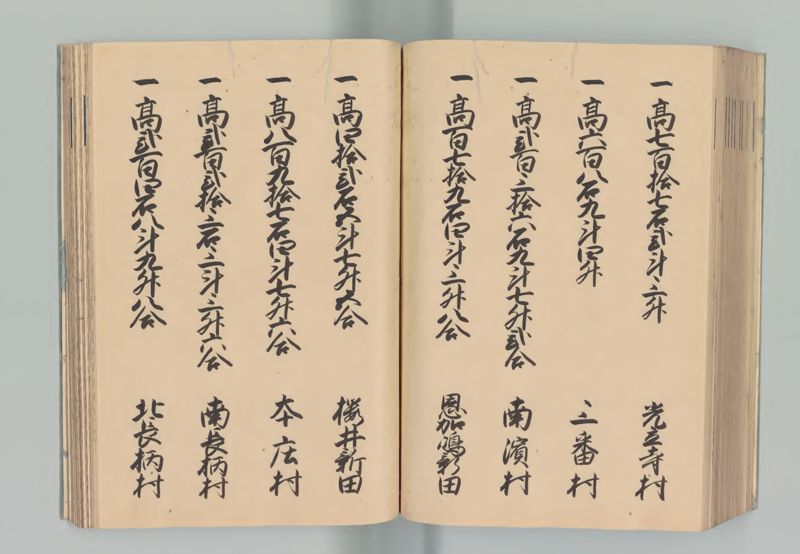 一高七百拾七石弐斗三升 光立寺村
一高六百八石九斗四升 三番村
一高弐百三拾六石九斗七升弐合 南濱村
一高百七拾九石四斗三升八合 恩加嶋新田
一高四拾弐石五斗七升五合 櫻井新田
一高八百九拾七石四斗七升六合 本庄村
一高弐百弐拾三石三斗三升六合 南長柄村
一高弐百四石八斗九升八合 北長柄村